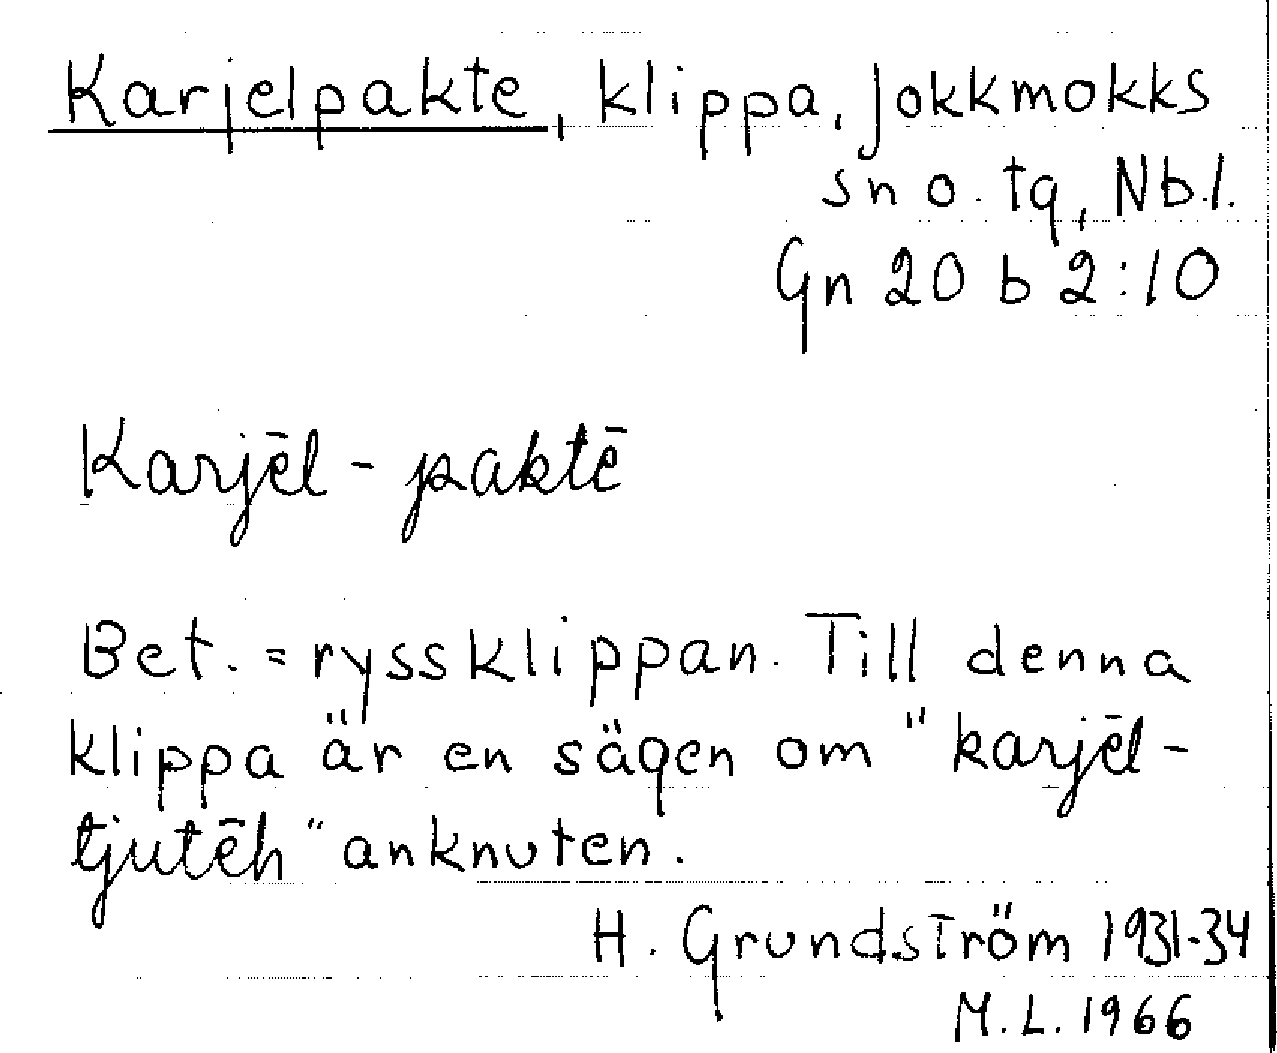 Karjelpakte, klippa, Jokkmokks
sn o. tg, Nb.l.
Gn 20 b 2:10
Karjēl-paktē
Bet. = ryssklippan. Till denna
klippa är en sägen om "karjēl-
tjutēh" anknuten.
H. Grundström 1931-34
M.L. 1966